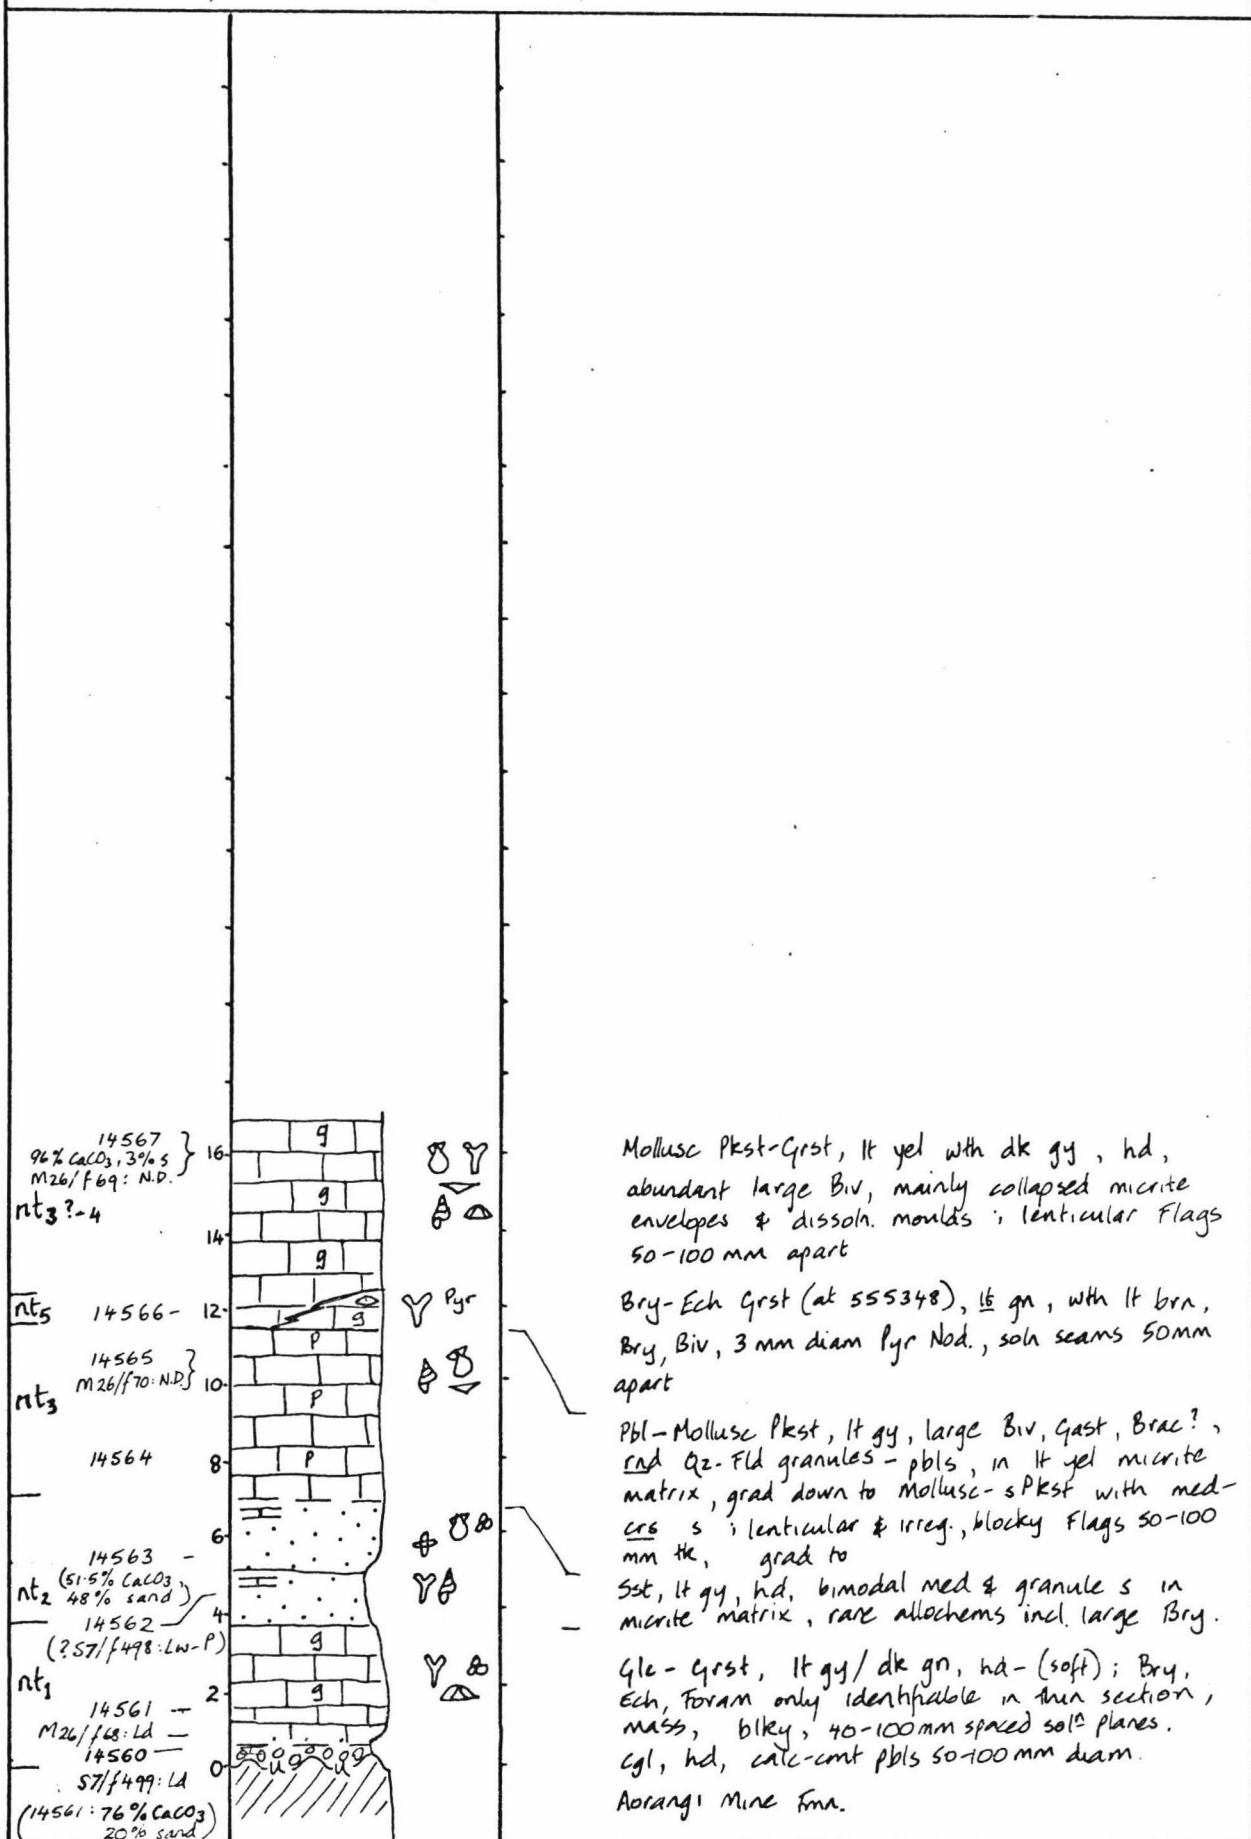 14567
96% CaCO3, 3% s
M26/f69: N.D.
nt3?-4
nt5
14566-
14565
M26/f70: N.D.
nt3
14564
14563 -
nt2
(51.5% CaCO3,
48% sand)
14562
(?S7/f498: Lw-P)
nt1
14561 -
M26/f68: Ld -
14560 -
S7/f499: Ld
(14561: 76% CaCO3
20% sand)
16
14
12
10
8
6
4
2
0
g
g
g
g
P
P
P
g
g
u u u
Pyr
Mollusc Pkst-Grst, lt yel wth dk gy, hd,
abundant large Biv, mainly collapsed micrite
envelopes & dissoln. moulds; lenticular Flags
50-100 mm apart
Bry-Ech Grst (at 555348), lt gn, wth lt brn,
Bry, Biv, 3 mm diam Pyr Nod., soln seams 50mm
apart
Pbl-Mollusc Pkst, lt gy, large Biv, Gast, Brac?,
rnd Qz-Fld granules - pbls, in lt yel micrite
matrix, grad down to Mollusc-s Pkst with med-
crs s; lenticular & irreg., blocky Flags 50-100
mm tk, grad to
Sst, lt gy, hd, bimodal med & granule s in
micrite matrix, rare allochems incl. large Bry.
Glc-Grst, lt gy/dk gn, hd-(soft); Bry,
Ech, Foram only identifiable in thin section,
mass, blky, 40-100mm spaced soln planes.
Cgl, hd, calc-cmt pbls 50-100 mm diam.
Aorangi Mine Fmn.